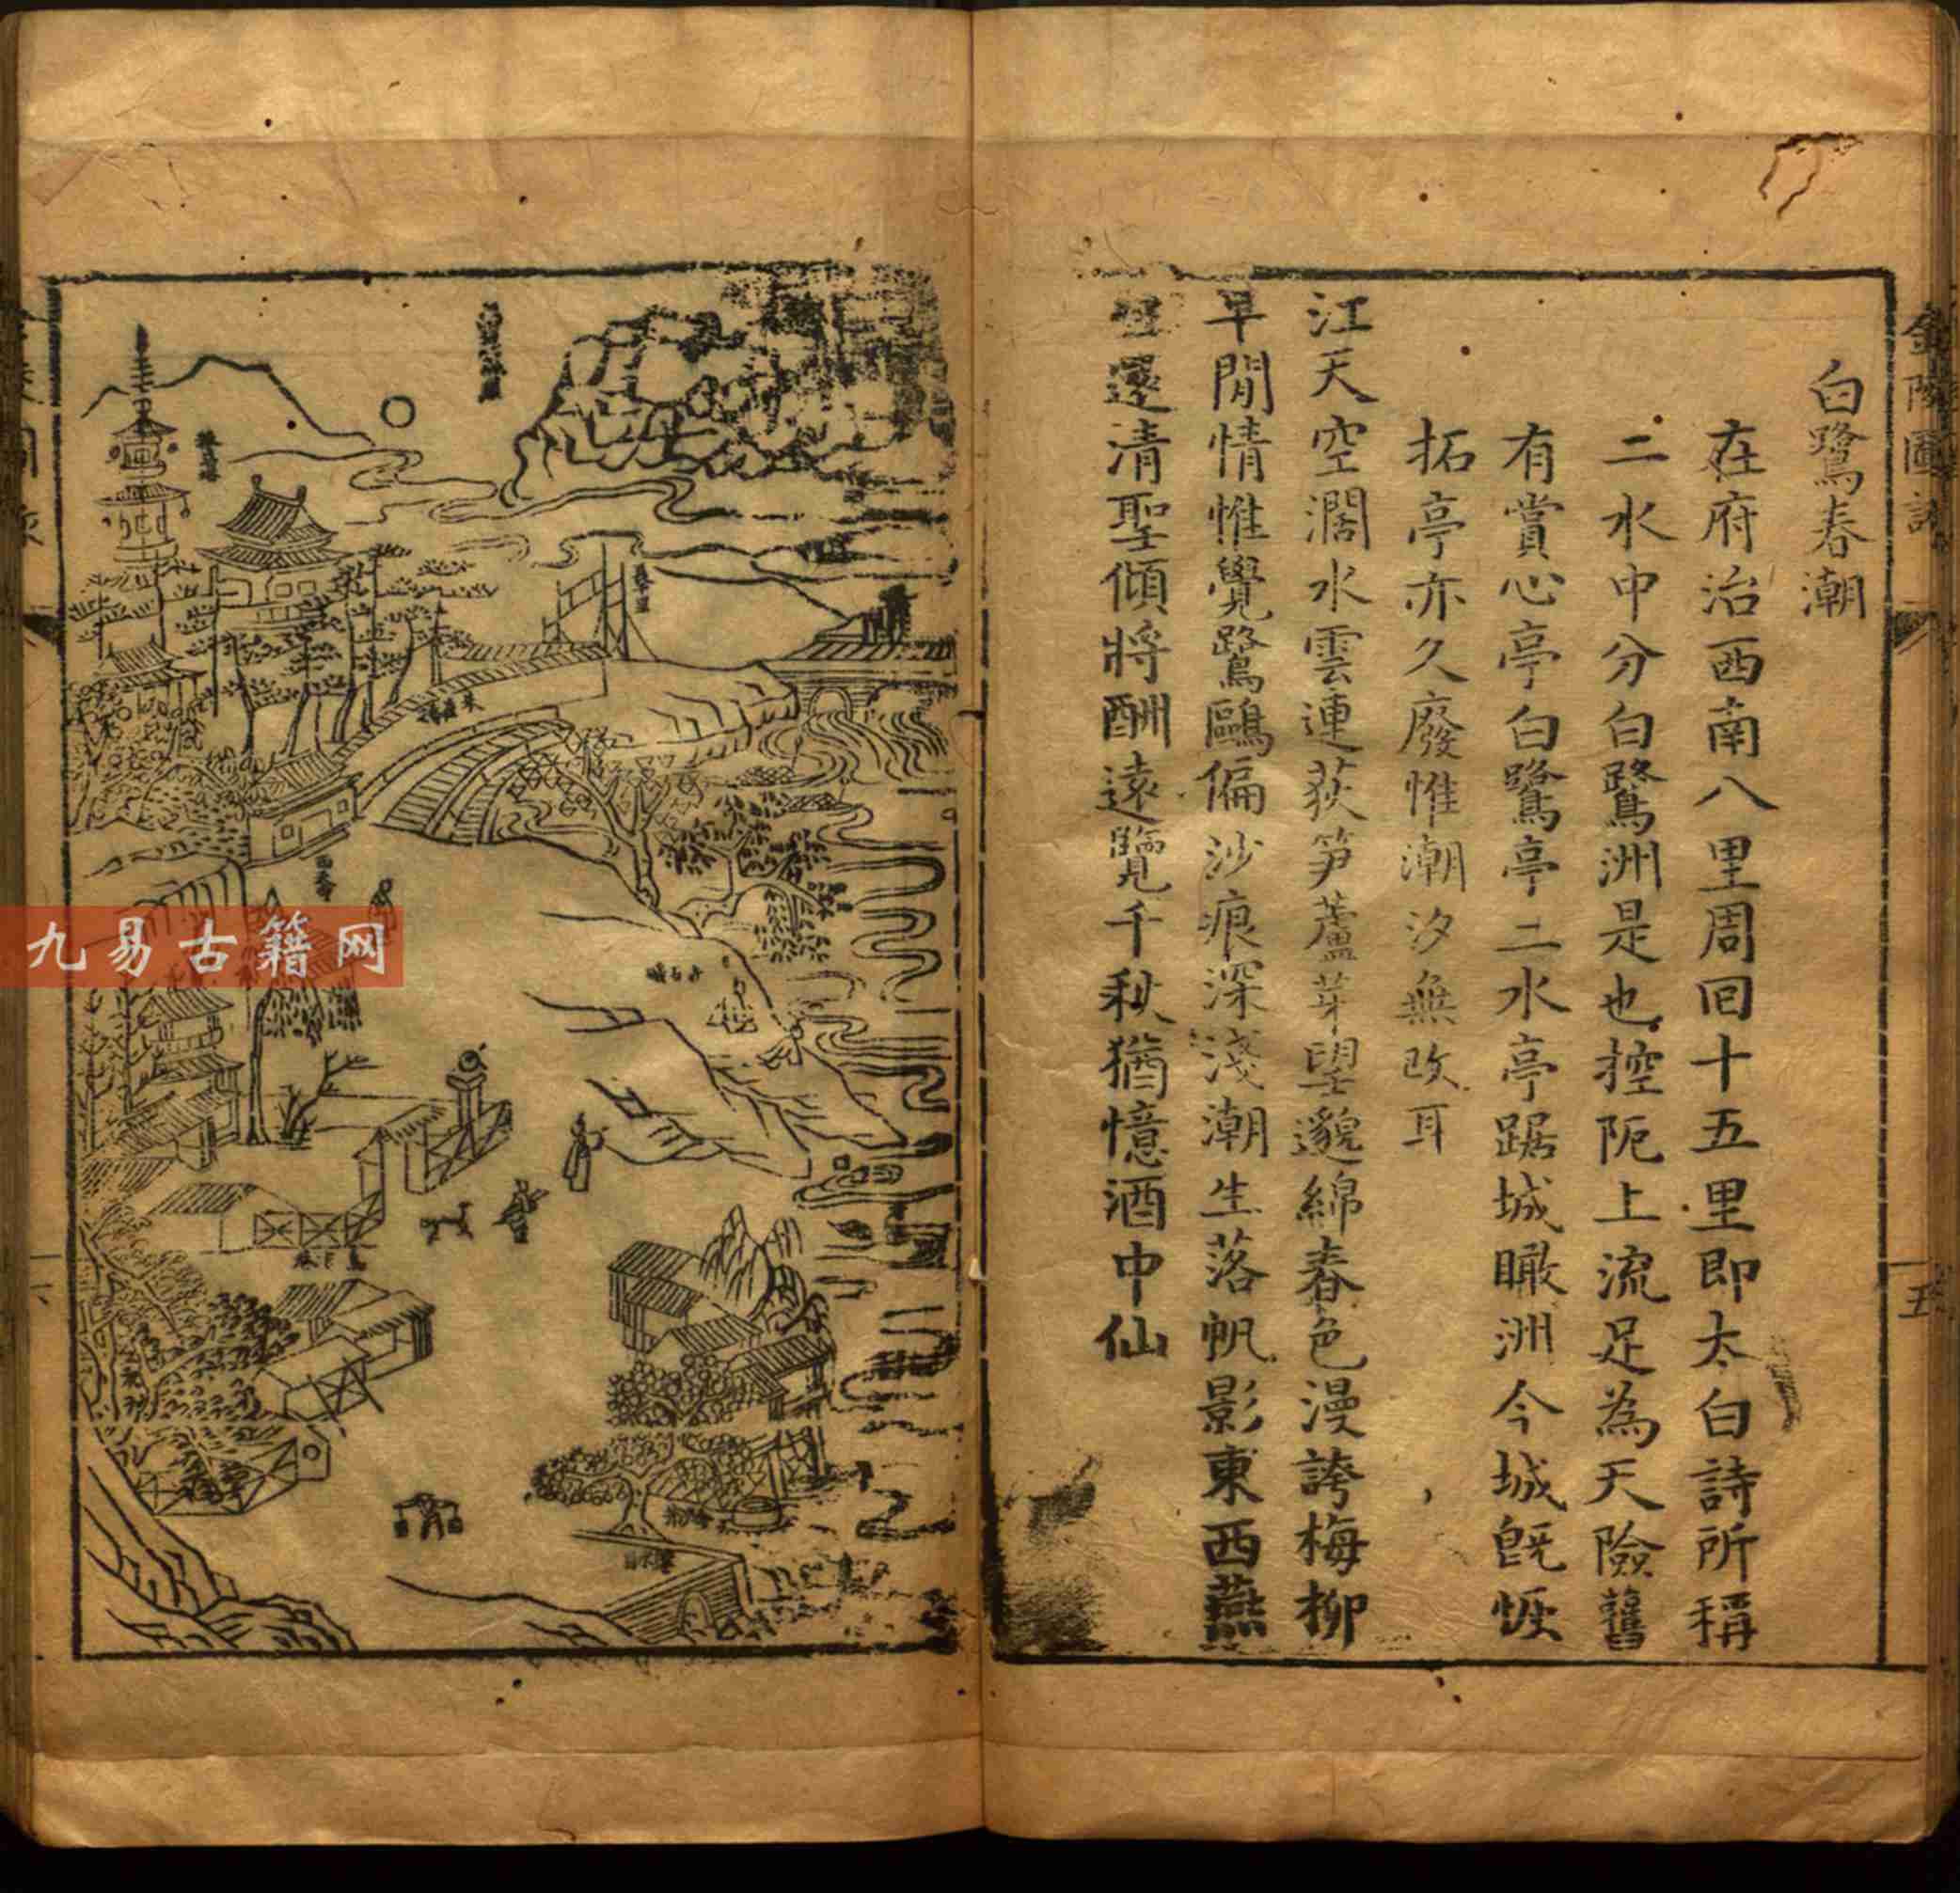 白鷺春潮
在府治西南八里周回十五里即太白詩所稱
二水中分白鷺洲是也控阨上流足為天險舊
有賞心亭白鷺亭二水亭踞城瞰洲今城既恢
拓亭亦久廢惟潮汐無改耳
江天空濶水雲連荻笋蘆芽望邈綿春色漫誇梅柳
早閒情惟覺鷺鷗偏沙痕深淺潮生落帆影東西燕
還清聖傾將酬遠覽千秋猶憶酒中仙
金陵圖詠
五
六
九易古籍网